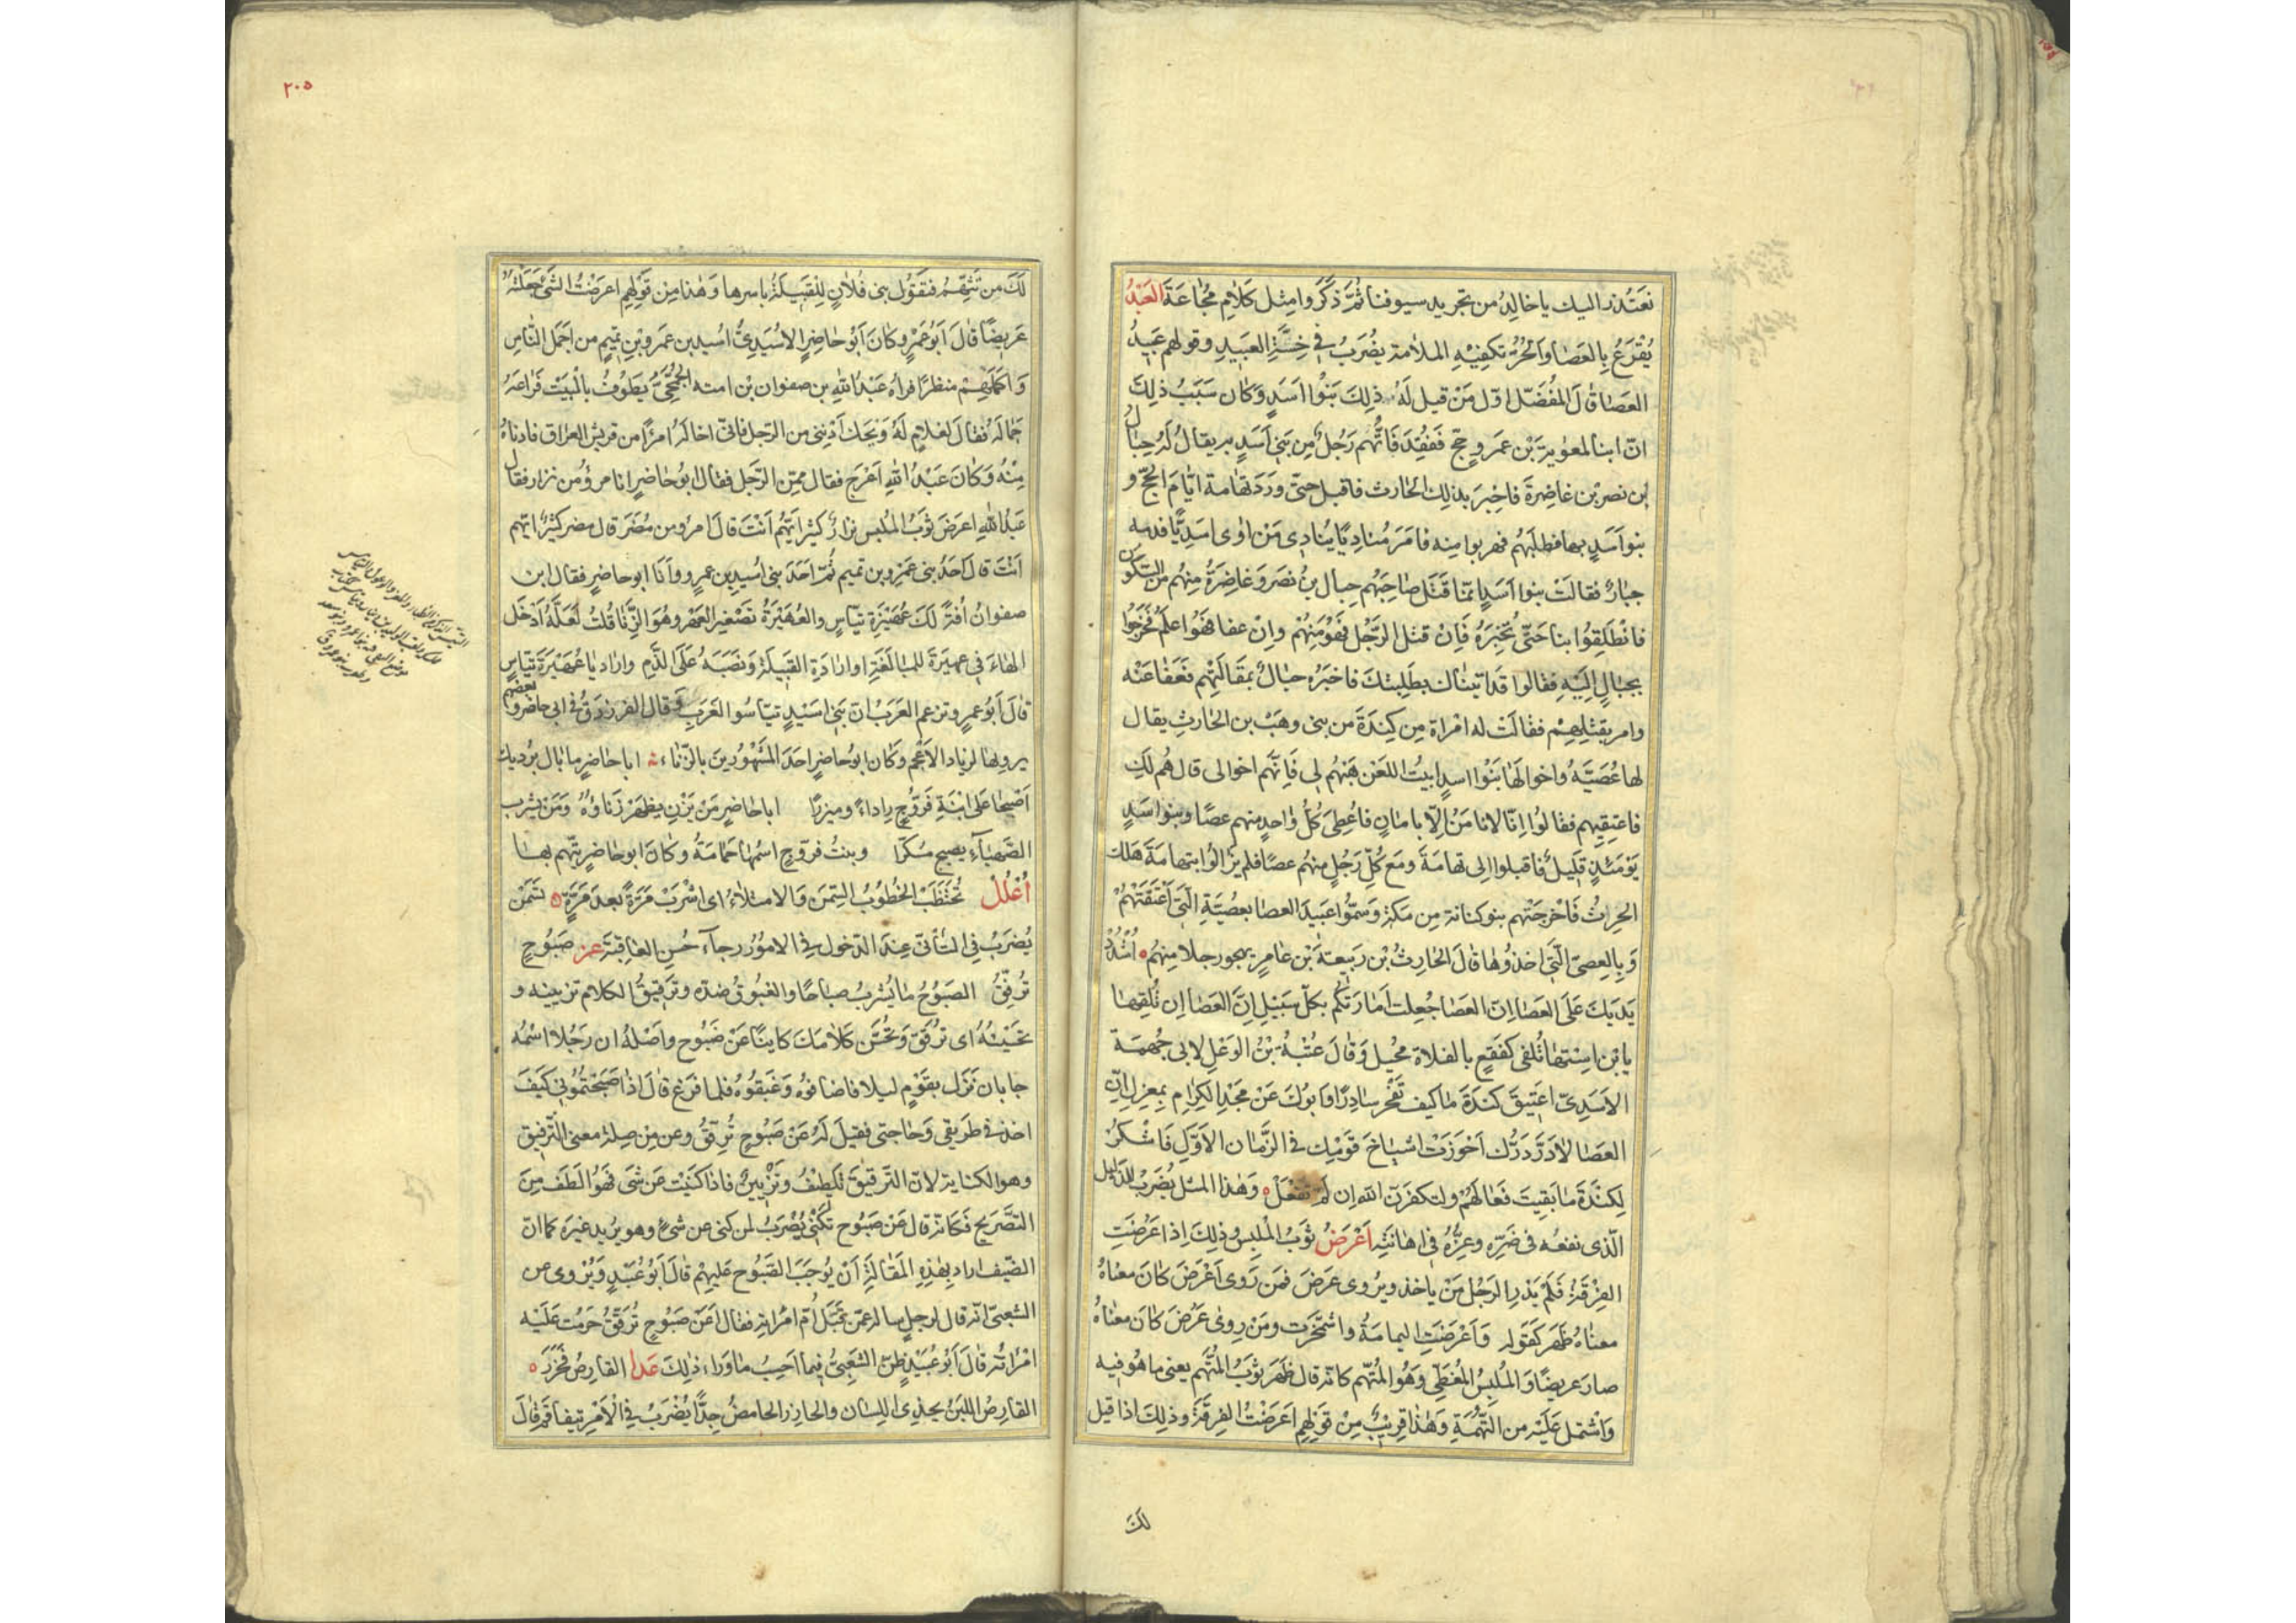 نعتذر اليك يا خالد من تجريد سيوفنا ثُمَّ ذكروا مثل كلام مجاعة العَبْدُ
يُقْرَعُ بِالعَصَا وَالحُرُّ تكفيه الملامة يضرب في خِسَّةِ العبيد وقولهم عَبِيدُ
العَصَا قالَ المُفَضّل اوّل مَنْ قيل لَهُ ذلِكَ بَنُوا اَسَدٍ وَكان سَبَبُ ذلك
انّ ابنا لمعوية بْن عمرو حجّ فَفُقِدَ فَاتُّهم رَجُلٌ مِن بَنِي اَسَدٍ به يقالُ لَهُ حِبَالُ
بن نصر بْن غاضِرةَ فاخبرَ بذلك الحارث فاقبل حتى وَرَدَ تهامة ايّامَ الحجّ و
بنو اَسَدٍ بها فطلَبَهُم فهربوا منه فامَرَ مُناديًا يُنادِى مَنْ اٰوى اسَدِيًّا فدمه
جبارٌ فقالَتْ بنوا اَسَدٍ انّما قَتَلَ صَاحِبَهُم حِبال بنُ نصَر وَغاضِرَةُ مِنهُم من السَّكُون
فانْطَلِقُوا بنا حَتّى نُخْبِرَهُ فَاِنْ قتل الرَّجُل فَهُوَ مِنهُمْ وانْ عفا فَهُوَ اعلم فخرجُوا
بحبَالٍ اِلَيْهِ فقالوا قد اتيناك بطَلِبتكَ فاخبَرَه حبالٌ بمقَالَتِهِم فَعَفَا عَنْه
وامر بقتلِهِمْ فقالَتْ له امْراة مِن كِنْدَةَ من بنى وهَبْ بن الحارثِ يقال
لها عُصَيَّةُ واخوالها بَنُوا اسدٍ ابيتَ اللعَن هَبْهُم لى فَاِنَّهم اخوالى قال هُم لَكِ
فاعتقِيهِم فقالُوا اِنّا لا نامَنُ اِلّا بامانٍ فاُعْطِىَ كُلُّ واحدٍ منهم عصًا وبنوا سَدٍ
يَوْمَئذٍ قَلِيلٌ فاقبلوا الى تهامَةَ ومَعَ كُلّ رَجُلٍ منهُم عصًا فلم يزالُوا بتهامَةَ هَلَكَ
الحرثُ فَاَخرجَتْهم بنو كنانة مِن مكة وَسُمُّوا عَبيدَ العصَا بعصَيَّةِ الّتى اَعْتَقَتْهُمْ
وَبِالعِصىّ الّتى اخذوها قالَ الحارثُ بْن رَبيعةَ بْن عامرٍ يهجو رجلا منهُم ٥ اُشْدُدْ
يَدَيكَ عَلَى العَصَا اِنّ العَصَا جُعِلت اَمَارَتَكُم بكلّ سَبيلِ اِنَّ العَصَا اِن تُلْقِهَا
يا بْن اِسْتِها تُلفى كفَقعٍ بالفلاة مُحيل وَقالَ عُتْبَةُ بْنُ الوَعْلِ لابى جُهمَةَ
الاَسَدِىّ اعَتِيقَ كندَةَ ما كيف تَفْخَر سادِرًا وَابُوكَ عَنْ مَجْدِ الكِرَامِ بمِعزلِ اِنّ
العَصَا لا دَرَّ دَرُّك اَحْرَزَتْ اشيَاخَ قومِكَ في الزّمان الاَوّلِ فَاشْكُرْ
لِكِنْدَةَ ما بَقِيتَ فَعَالَهُمْ ولتكفرَنّ الله ان لَمْ تَفْعَلْ ٥ وَهٰذا المثل يُضرَبُ للذّليل
الّذى نفعه فى ضَرّه وعِزُّهُ في اهانَتِه اَعْرَضَ ثَوبُ المُلبِس وذلِكَ اِذا عَرُضَتِ
الفِرْقَةُ فَلَمْ يَدْرِ الرَجُلُ مَنْ ياخذ ويُروى عَرَضَ فَمَن رَوى اَعْرَضَ كانَ معناهُ
معناهُ ظَهَر كقَوله وَاَعْرَضَتِ اليمامَةُ واشْمَخَرّت ومَنْ روىٰ عَرُضَ كانَ معناهُ
صارَ عريضًا وَالمُلبِسُ المُغَطّى وَهُوَ المُتّهم كانه قال ظهر ثَوبُ المُتّهَم يعنى ما هُوَ فيه
وَاشْتمل عَلَيْه من التُّهَمَةِ وَهٰذا قرِيبٌ مِنْ قَولِهِم اَعرَضْتَ الفِرقَةَ وذلِكَ اذا قيل
لكَ
٢٠٥
لَكَ من تَتَّهِمُ فتَقوُل بنى فُلانٍ لِلقَبِيلَةُ باسرها وَهٰذا مِن قَولِهِم اعرَضْتُ الشَّىْ جَعَلْتُهُ
عَرِيضًا قالَ اَبُو عَمْرٍو كانَ اَبُو حاضرٍ الاُسَيدِىُّ اُسَيد بن عمرو بْنِ تميمٍ من اَجمَل النّاسِ
وَاكمَلِهِمْ منظرًا فراٰه عَبْدُ اللهِ بن صفوان بْن اميه الجُمَحِىُّ يَطُوفُ بالبَيْت فَراعَهُ
جمالَه فقالَ لغلامٍ لَهُ وَيحَكَ اَدْنِنى من الرّجل فانّى اخالَهُ امرًا من قريش العراق فادناهُ
مِنْهُ وَكانَ عَبْدُ اللهِ اَعْرَج فقال ممّن الرّجل فقال ابُو حاضرٍ انا امرؤٌ من نزار فقال
عبدُ اللهِ اعرَضَ ثَوبُ المُلبس نزارٌ كثيرٌ ايّهُم اَنْتَ قالَ امرؤ من مُضَرَ قال مضر كثيرٌ ايّهم
اَنْتَ قال اَحَدُ بنى عَمرو بن تميم ثُمّ اَحَدَ بنى اُسَيدِ بن عمرٍو وَاَنا ابو حاضرٍ فقال ابن
صفوان اُفّةً لَكَ عُهَيْرَةِ تيّاسٍ والعُهَيْرَةُ تَصْغير العَهْر وهُوَ الزِّنَا قُلتُ لَعَلّهُ اَدْخَل
الهاءَ فى عهيرَةَ للمبالَغَةِ او ارادَةِ القَبيلَة وَنَصَبَهُ عَلَى الذّمِ وارادَ يا عُهَيْرَةَ تيّاسٍ
قالَ اَبُو عمرٍو وتزعم العَرَبُ انّ بَنى اُسَيْدٍ تيّاسُوا العَرَبِ وَقال الفرزدقُ فى ابى حاضر وبعضهم
يرويها لزياد الاَعْجَم وَكان ابو حاضرٍ احَدَ المَشْهُورينَ بالزّناء ابا حاضرٍ ما بال بُرديك
اَصْبحَا عَلى ابْنَةِ فَرّوجٍ رداءً وميزرًا ابا حاضرٍ مَنْ يَزْنِ يظهَرْ زَناؤُهُ ومَنْ يشرب
الصَّهباءَ يصبح مُسكّرا وبنتُ فرّوجٍ اسْمُها حمَامَةُ وكانَ ابو حاضر يتّهم بها
اُعْلُلْ تُحْظَبْ الخُطُوبُ السِّمَن وَالامتلاءُ اى اشْرَبْ مَرّةً بعدَ مَرّةٍ تسْمَنْ
يُضرَبُ فِى التَّأنّى عِندَ الدّخول فى الامُور رجاءَ حُسنِ العاقبَة عن صَبُوحٍ
تُرَقّقُ الصَبُوحُ ما يُشربُ صباحًا والغبوقُ ضدّه وترقيقُ الكلام تزيينه و
تحسينُهُ اى تُرَقّقُ وَتُحَسِّن كلامَكَ كاينًا عَنْ صَبُوحٍ واَصْلهُ ان رَجُلا اسْمُه
جابان نَزَل بقَوْمٍ ليلا فاضافوُهُ وَغَبقُوهُ فلما فرغ قالَ اذا صَبَحْتُموُنى كَيفَ
اخذ فى طَريقى وَحاجتى فقيلَ لَهُ عَنْ صَبُوحٍ تُرقّقُ وعن مِن صِلة معنى التّرقيق
وهو الكناية لانّ التَّرقيق تَلطيفٌ وتَزْيينٌ فاذا كَنَيْت عن شَى فَهُوَ اَلطَف مِن
التصَّريح فكانه قال عَنْ صَبُوح تكْنى يُضْرَبُ لمن كنى عن شىءٍ وهو يُريد غيرَه كما انّ
الضّيف اراد بِهٰذِه المَقالَةِ اَنْ يُوجبَ الصَّبُوح عَلَيْهِمْ قالَ اَبُو عُبَيْدٍ وَيُروى عن
الشعبىّ انّه قال لرجل ساله عمّن قبَّل اُمّ امرَاتِه فقال اَعَنْ صَبُوحٍ تُرَقّقُ حَرُمت عَلَيْه
امْرَاتُه قالَ اَبُو عُبَيْدٍ ظنّ الشّعبىُّ فيما احسِبُ ما وَراءَ ذٰلِكَ عَدا القارِصُ فحَزَرَ ٥
القارِصُ اللبنُ يحذى اللِسان والحازر الحامضُ جِدًّا يُضرَبُ فى الاَمْر يتفاقم قالَ